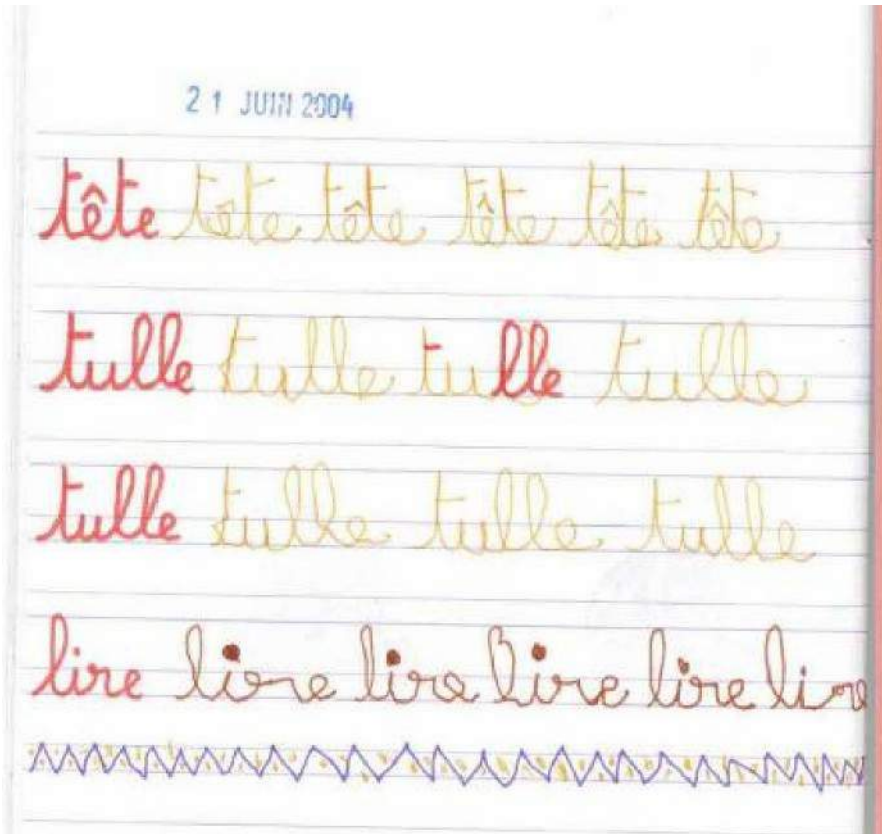 21 JUIN 2004
tête tête tête tête tête tête
tulle tulle tulle tulle
tulle tulle tulle tulle
lire lire lire lire lire lire